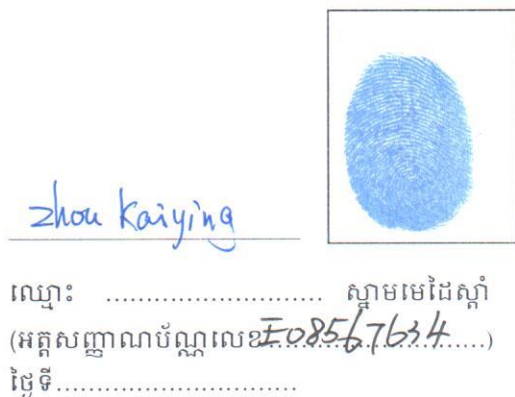 zhou Kaiying
ឈ្មោះ ........................... ស្នាមមេដៃស្តាំ
(អត្តសញ្ញាណប័ណ្ណលេខ E08567634......)
ថ្ងៃទី..............................